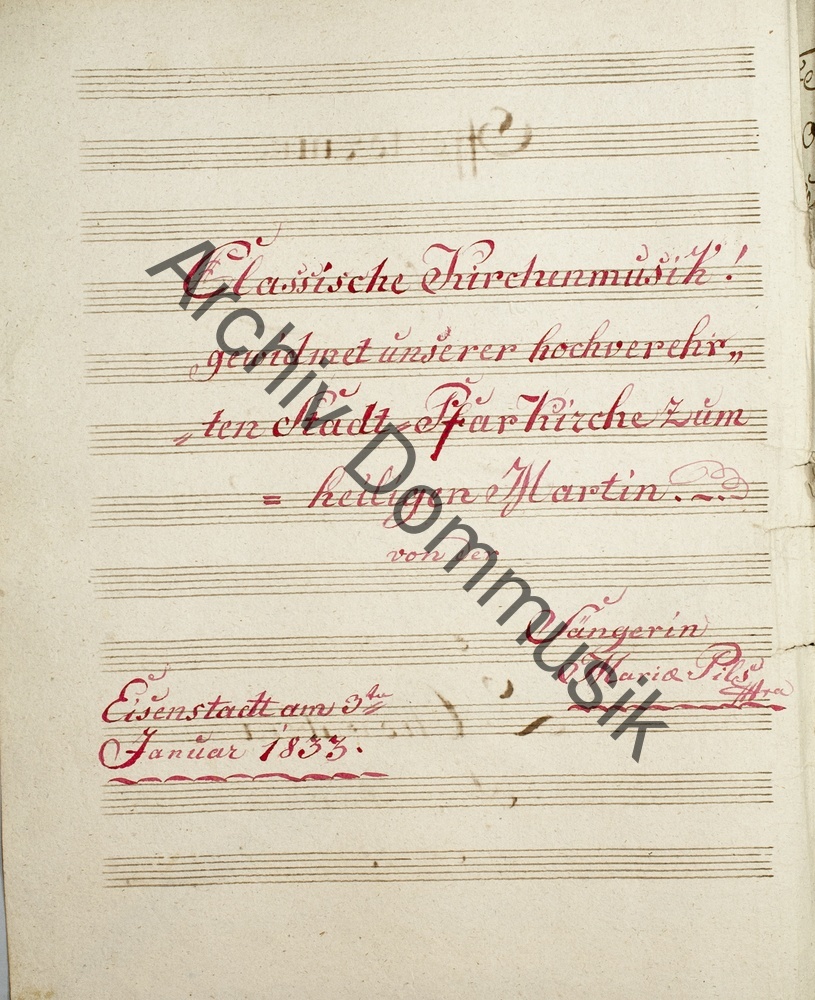 Classische Kirchenmusik!
gewidmet unserer hochverehr„
„ten Stadt=Pfarkirche zum
= heiligen Martin.
von der
Sängerin
Maria Pils
mra
Eisenstadt am 3te
Januar 1833.
Archiv Dommusik